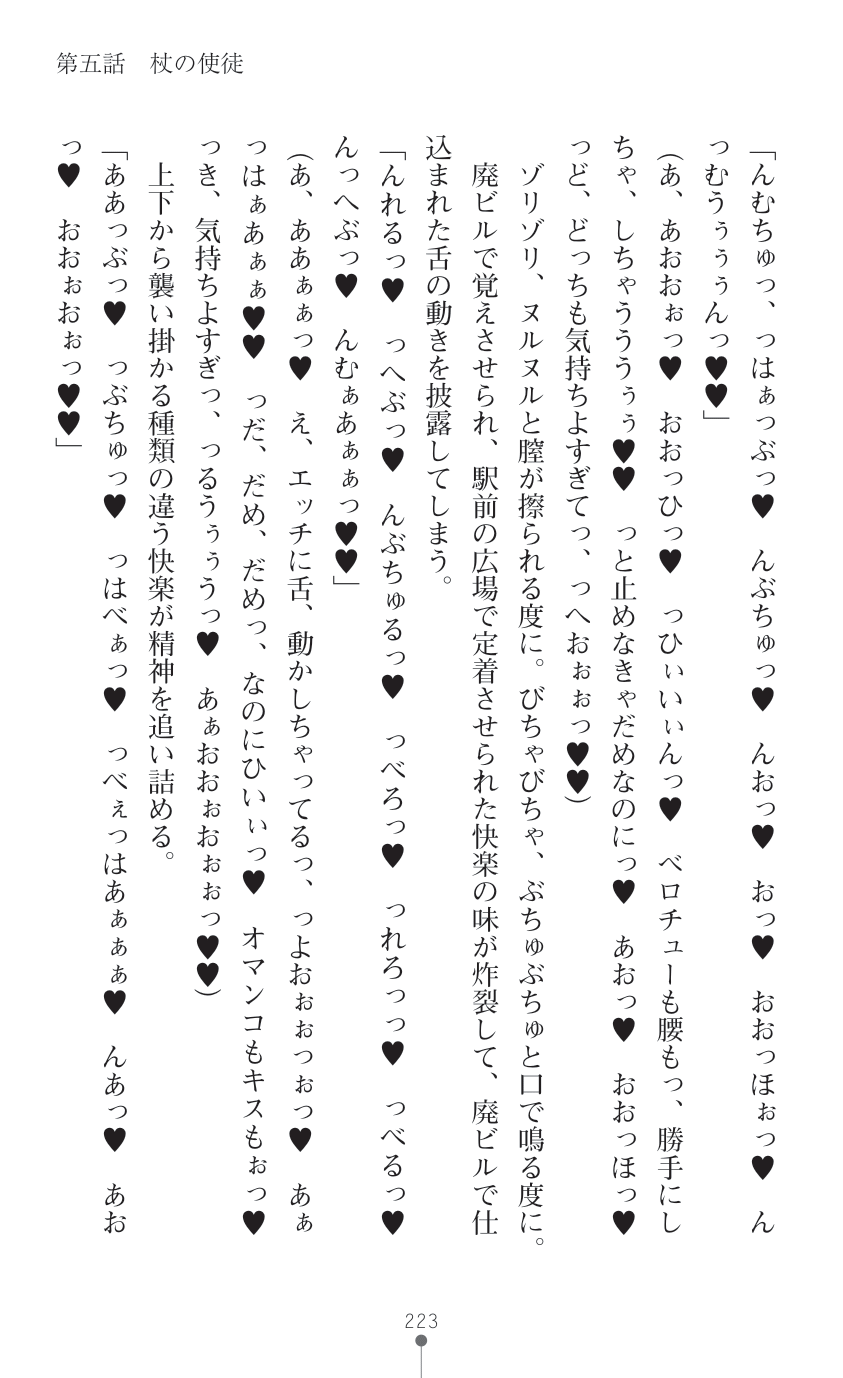 第五話　杖の使徒
「んむちゅっ、っはぁっぶっ♥　んぶちゅっ♥　んおっ♥　おっ♥　おおっほぉっ♥　ん
っむうぅぅぅんっ♥♥」
（あ、あおおぉっ♥　おおっひっ♥　っひぃいぃんっ♥　ベロチューも腰もっ、勝手にし
ちゃ、しちゃうううぅぅ♥♥　っと止めなきゃだめなのにっ♥　あおっ♥　おおっほっ♥
っど、どっちも気持ちよすぎてっ、っへおぉぉっ♥♥）
ゾリゾリ、ヌルヌルと膣が擦られる度に。びちゃびちゃ、ぶちゅぶちゅと口で鳴る度に。
廃ビルで覚えさせられ、駅前の広場で定着させられた快楽の味が炸裂して、廃ビルで仕
込まれた舌の動きを披露してしまう。
「んれるっ♥　っへぶっ♥　んぶちゅるっ♥　っべろっ♥　っれろっっ♥　っべるっ♥
んっへぶっ♥　んむぁあぁぁっ♥♥」
（あ、ああぁぁっ♥　え、エッチに舌、動かしちゃってるっ、つよおぉぉっぉっ♥　あぁ
っはぁあぁぁ♥♥　っだ、だめ、だめっ、なのにひいぃっ♥　オマンコもキスもぉっ♥
っき、気持ちよすぎっ、っるうぅぅうっ♥　あぁおおぉおぉぉっ♥♥）
上下から襲い掛かる種類の違う快楽が精神を追い詰める。
「ああっぶっ♥　っぶちゅっ♥　っはべぁっ♥　っべぇっはあぁぁぁ♥　んあっ♥　あお
っ♥　おおぉおぉっ♥♥」
223